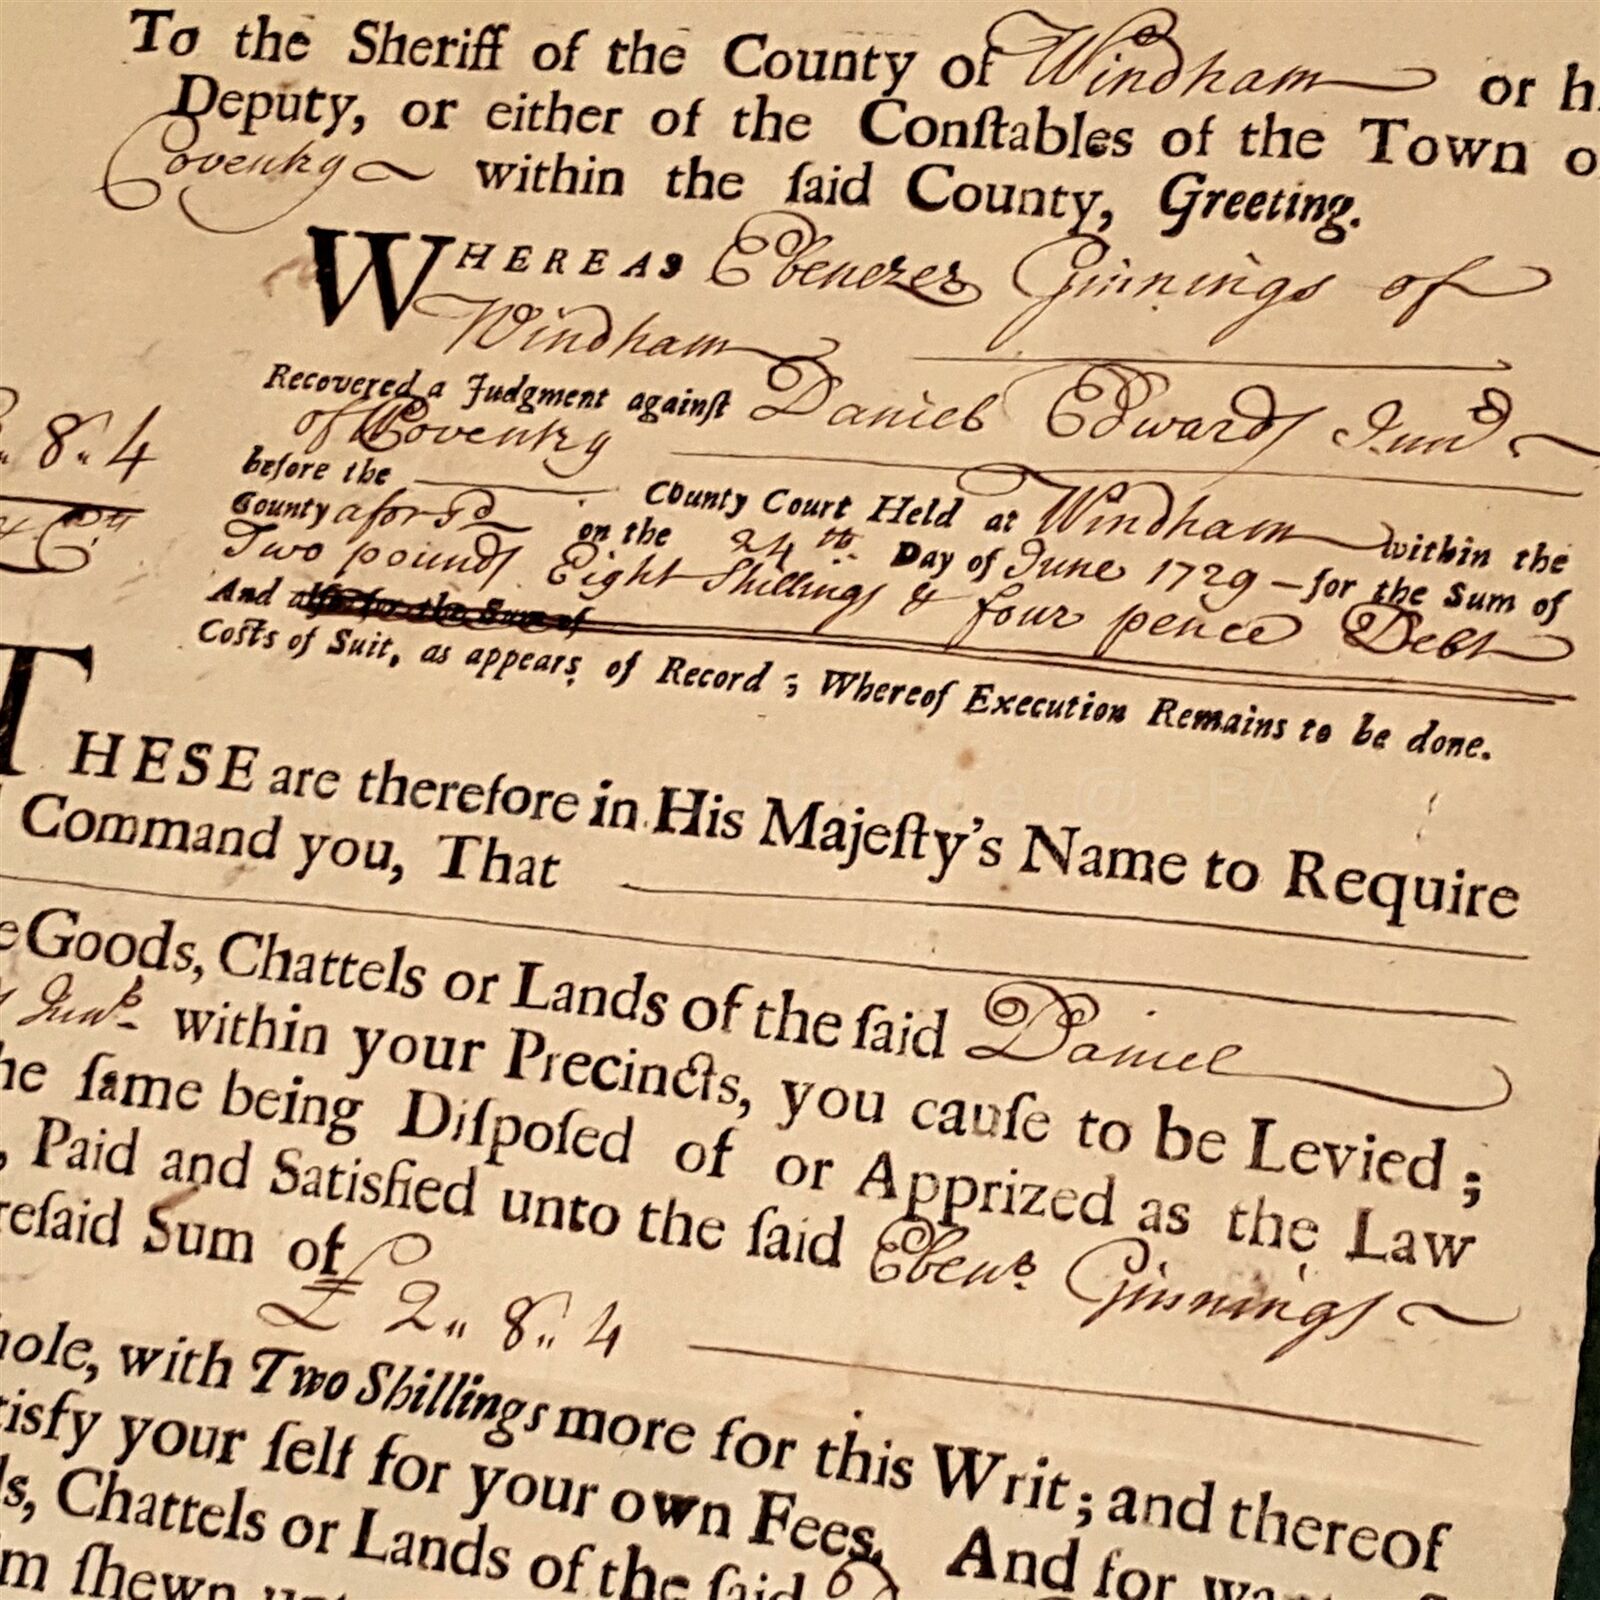 To the Sheriff of the County of Windham or
Deputy, or either of the Conſtables of the Town
Coventry within the ſaid County, Greeting.
WHEREAS Ebenezer Ginnings of
Windham
Recovered a Judgment againſt Daniel Edwards Junr
of Coventry
8 „ 4
before the County Court Held at Windham within the
County aforsd on the 24th Day of June 1729 for the Sum of
Two pounds Eight Shillings & four pence Debt
And alſo for the Sum of
Coſts of Suit, as appears of Record; Whereof Execution Remains to be done.
THESE are therefore in His Majeſty's Name to Require
Command you, That
Goods, Chattels or Lands of the ſaid Daniel
Junr within your Precincts, you cauſe to be Levied;
ſame being Diſpoſed of or Apprized as the Law
, Paid and Satisfied unto the ſaid Ebenr Ginnings
reſaid Sum of
£ 2 „ 8 „ 4
hole, with Two Shillings more for this Writ; and thereof
tisfy your ſelf for your own Fees. And for
ls, Chattels or Lands of the ſaid
m ſhewn